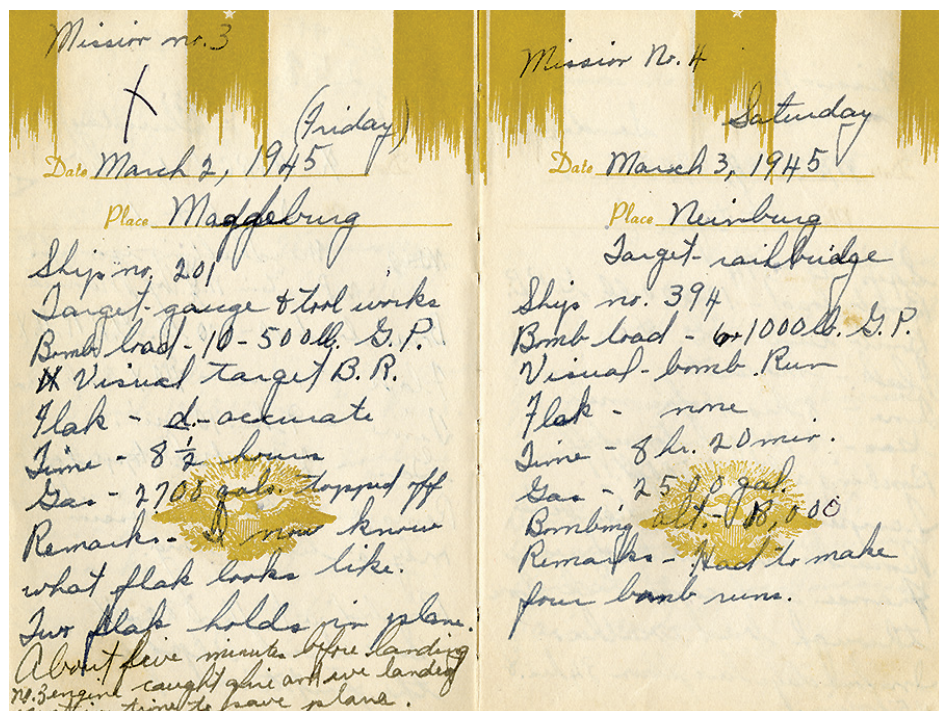 Mission no. 3
(Friday)
Date March 2, 1945
Place Magdeburg
Ship no. 201
Target - gauge & tool works
Bomb load - 10 - 500 lb. G.P.
Visual target B.R.
Flak - d. - accurate
Time - 8 1/2 hours
Gas - 2700 gals. topped off
Remarks - I now know
what flak looks like.
Two flak holds in plane.
About five minutes before landing
no. 3 engine caught fire and we landed
time to save plane.
Mission No. 4
Saturday
Date March 3, 1945
Place Neinburg
Target - rail bridge
Ship no. 394
Bomb load - 6 - 1000 lb. G.P.
Visual - bomb Run
Flak - none
Time - 8 hr. 20 min.
Gas - 2500 gal.
Bombing alt. - 18,000
Remarks - Had to make
four bomb runs.